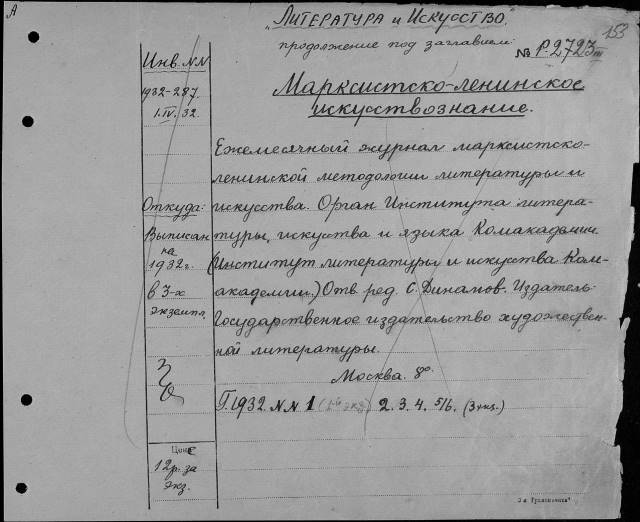 А
"Литература и Искусство".
продолжение под заглавием:
153
№ Р-2723 III
Марксистско-ленинское
искусствознание.
Инв. NN
1932-287.
1.IV.32.
Откуда:
Выписан
на
1932 г.
в 3-х
экземпл.
Цена
12р. за
экз.
Ежемесячный журнал марксистско-
ленинской методологии литературы и
искусства. Орган Института литера-
туры, искусства и языка Комакадемии
(Институт литературы и искусства Ком-
академии.) Отв. ред. С. Динамов. Издатель-
Государственное издательство художествен-
ной литературы.
Москва. 8º.
Г. 1932. N N 1 2. 3. 4. 5/6. (3 экз.)